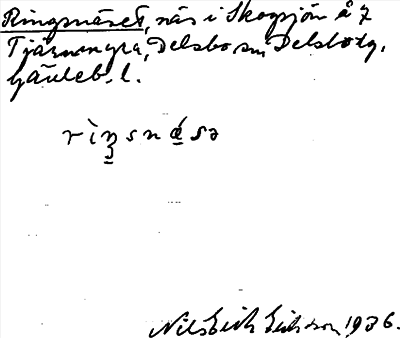 Ringsnäset, näs i Skogsjön å 7
Tjärnmyra, Delsbo sn, Delsbo tg,
Gävleb. l.
rìŋsnǽsə
Nils Erik Eriksson 1936.